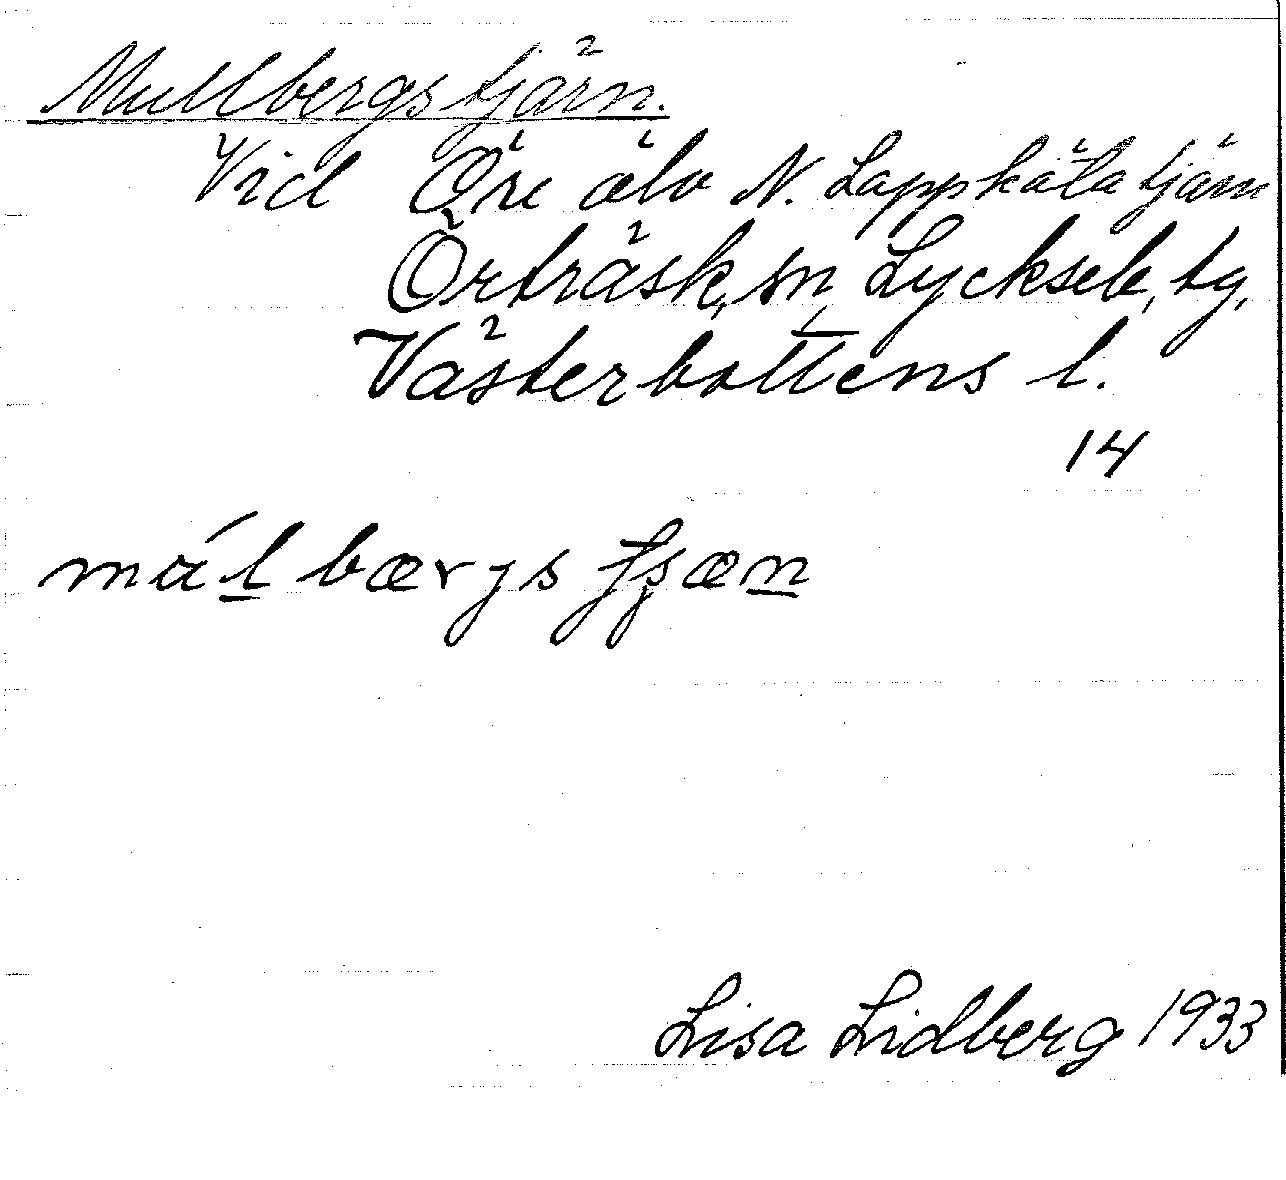 Mullbergstjärn.
Vid Öre älv N. Lappkåtatjärn
Örträsk, sn, Lycksele, tg,
Västerbottens l.
14
Lisa Lidberg 1933